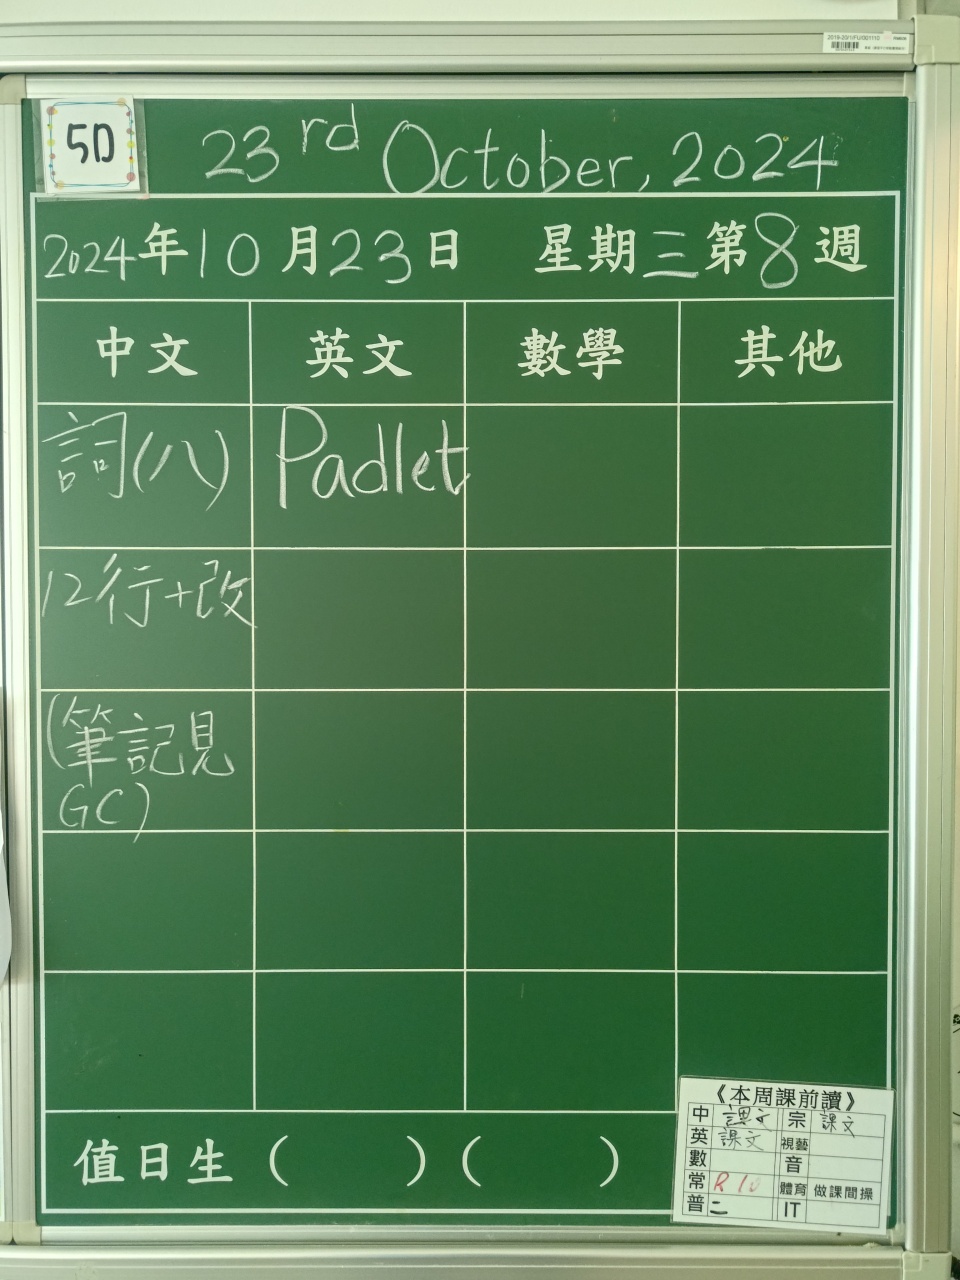 2019-20/I/FU/001110
5D
23rd October, 2024
2024年10月23日 星期三第8週
中文 英文 數學 其他
詞(八) Padlet
12行+改
(筆記見
GC)
《本周課前讀》
中 課文 宗 課文
英 課文 視藝
數 音
常 R 10 體育 做課間操
普 二 IT
值日生 ( ) ( )